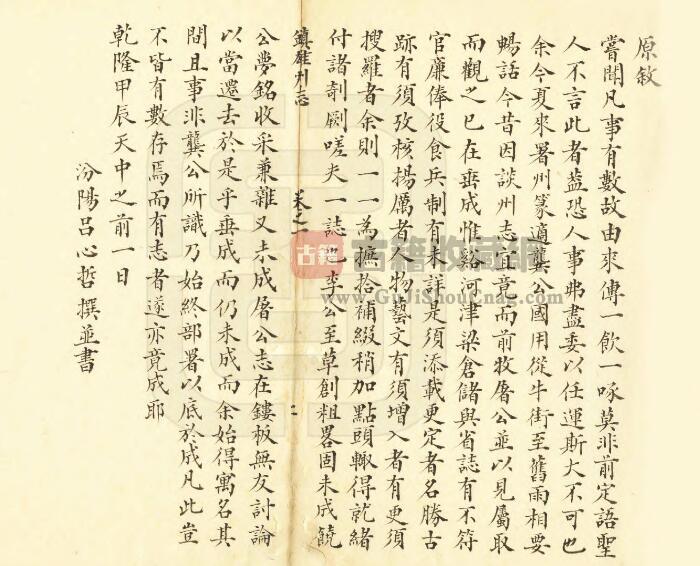 原敘
嘗聞凡事有數故由來傳一飲一啄莫非前定語聖
人不言此者蓋恐人事弗盡委以任運斯大不可也
余今夏來署州篆適龔公國用從牛街至舊雨相要
暢話今昔因談州志具竟而前牧屠公並以見屬取
而觀之已在垂成惟谿河津梁倉儲與省誌有不符
官廉俸役食兵制有未詳是須添載更定者名勝古
跡有須攷核揚厲者人物藝文有須增入者有更須
搜羅者余則一一為摭拾補綴稍加點頭輙得就緒
付諸剞劂嗟夫一誌也李公至草創粗畧固未成饒
鎮雄州志
卷之一
二
公夢銘收采兼雜又未成屠公志在鏤板無友討論
以當遷去於是乎垂成而仍未成而余始得寓名其
間且事非龔公所識乃始終部署以底於成凡此豈
不皆有數存焉而有志者遂亦竟成耶
乾隆甲辰天中之前一日
汾陽呂心哲撰並書
古籍
古籍收藏網
www.GuJiShouCang.com